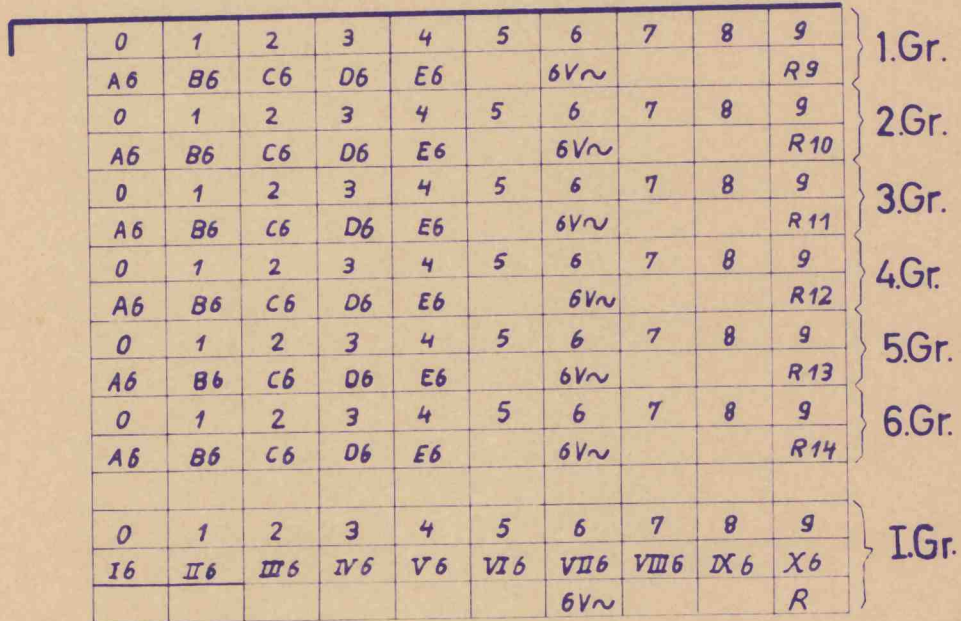 0 1 2 3 4 5 6 7 8 9 1.Gr.
A6 B6 C6 D6 E6 6V~ R9
0 1 2 3 4 5 6 7 8 9 2.Gr.
A6 B6 C6 D6 E6 6V~ R10
0 1 2 3 4 5 6 7 8 9 3.Gr.
A6 B6 C6 D6 E6 6V~ R11
0 1 2 3 4 5 6 7 8 9 4.Gr.
A6 B6 C6 D6 E6 6V~ R12
0 1 2 3 4 5 6 7 8 9 5.Gr.
A6 B6 C6 D6 E6 6V~ R13
0 1 2 3 4 5 6 7 8 9 6.Gr.
A6 B6 C6 D6 E6 6V~ R14
0 1 2 3 4 5 6 7 8 9 I.Gr.
I6 II6 III6 IV6 V6 VI6 VII6 VIII6 IX6 X6
6V~ R